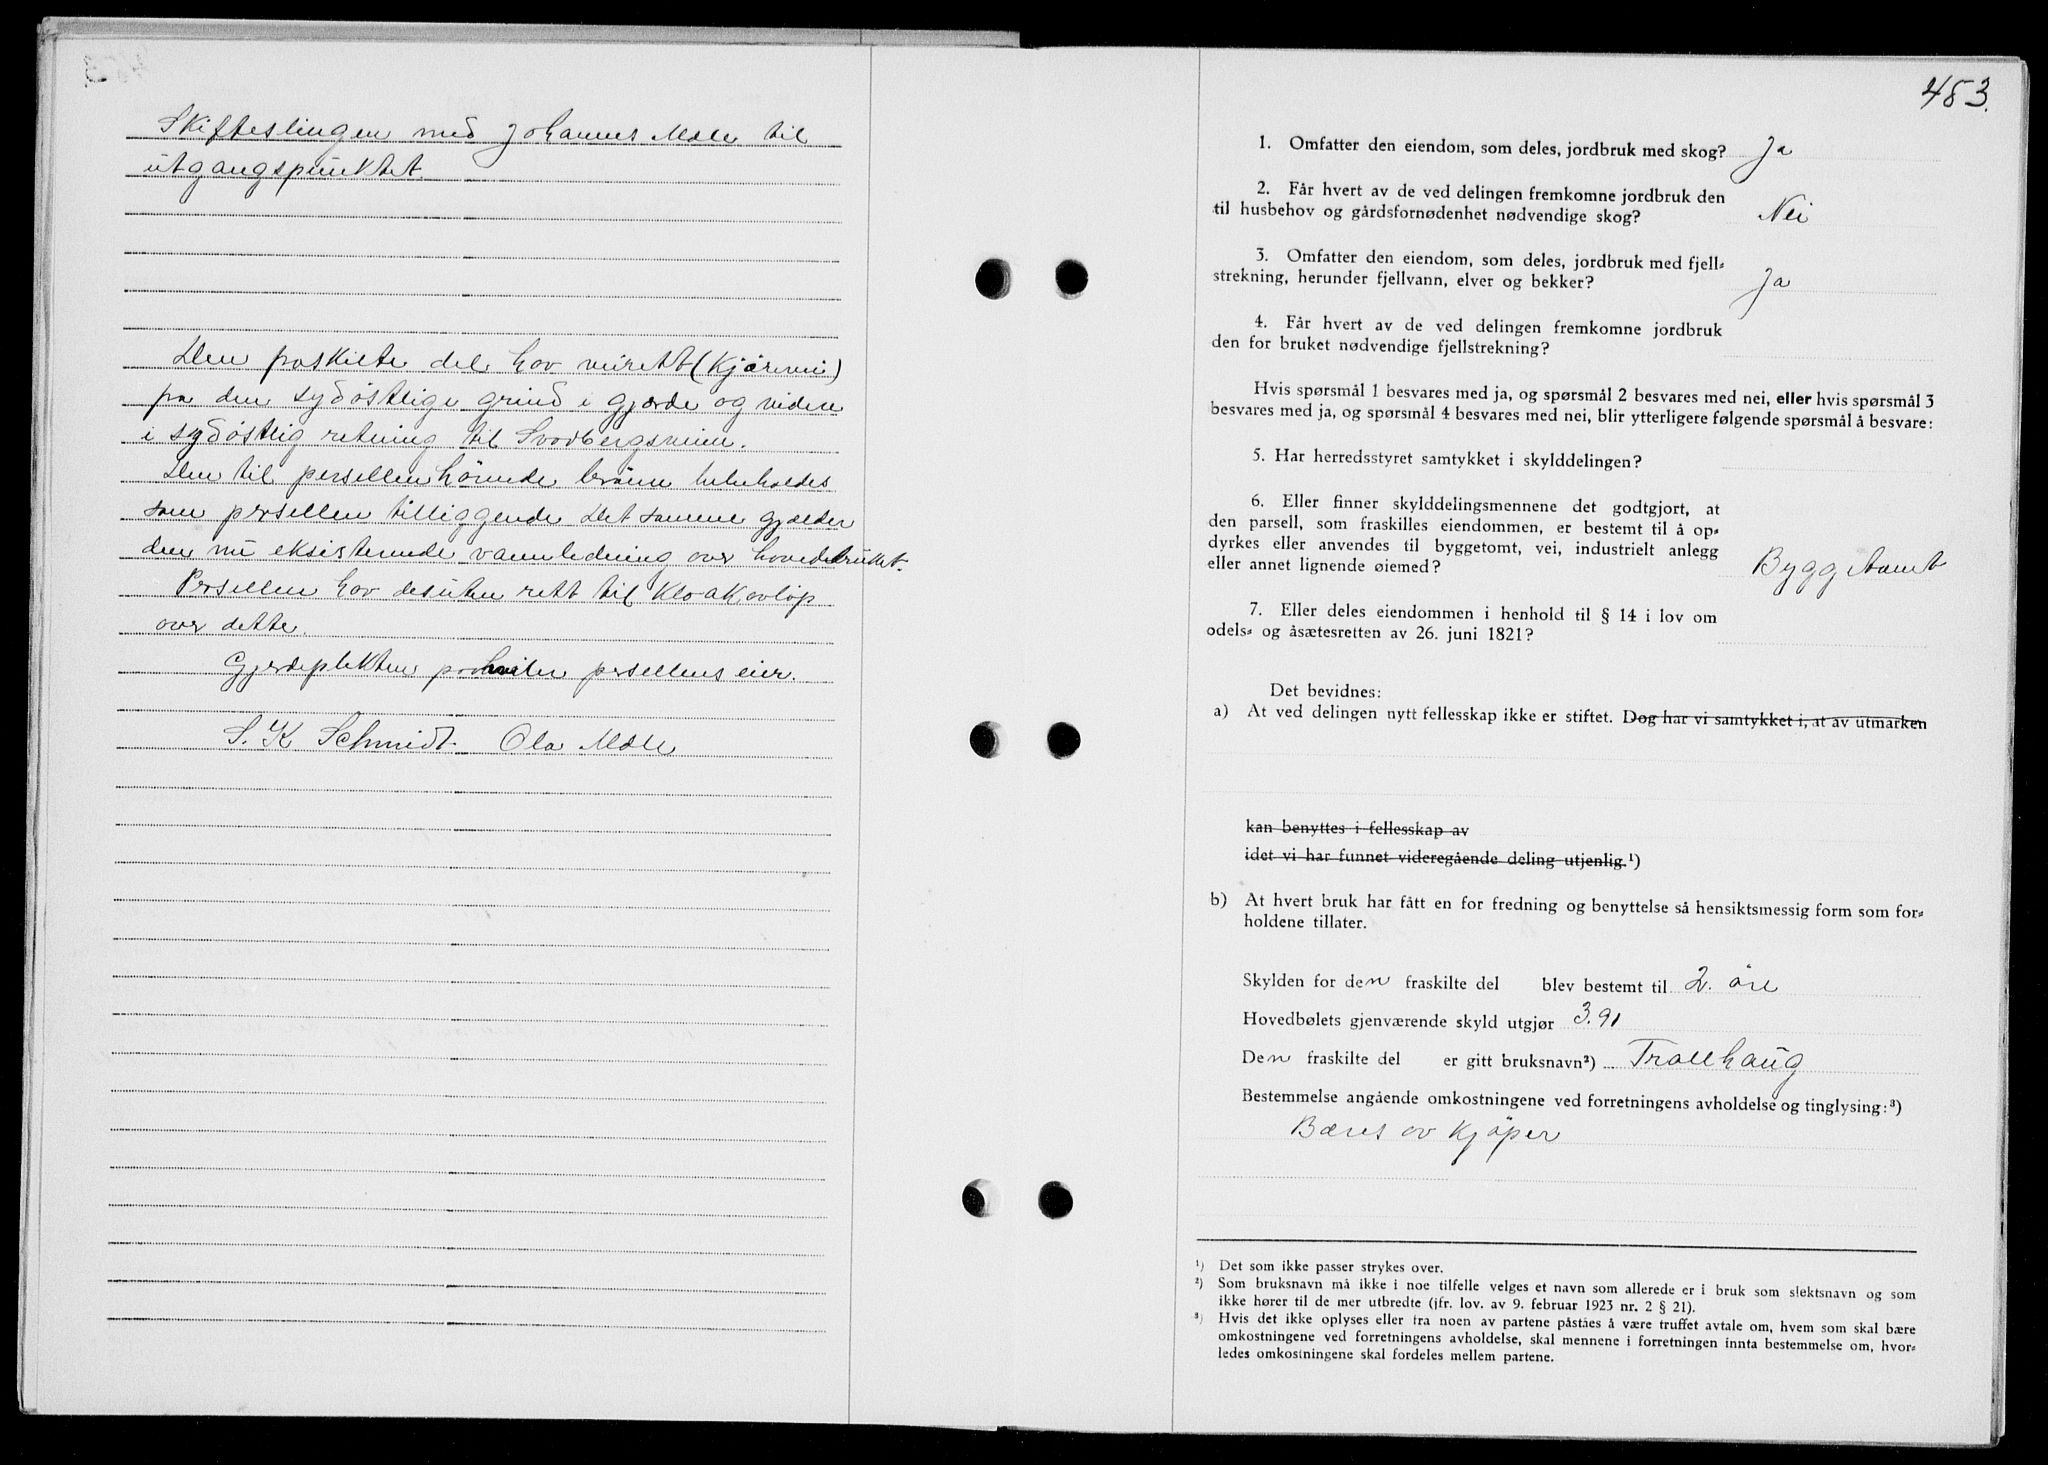 Skifteslingen med Johannes Mæle til
utgangspunktet.
Den fraskilte del har veirett (Kjørevei)
fra den sydøstlige grind i gjerde og videre
i sydøstlig retning til Svadbergsveien.
Den til persellen hørende brønn beholdes
som persellen tilliggende. Det samme gjælder
den nu eksisterende vannledning over hovedbruket.
Persellen har desuten rett til Kloakavløp
over dette.
Gjerdeplikten påhviler persellens eier.
S. K Schmidt. Ola Mæle
483.
1. Omfatter den eiendom, som deles, jordbruk med skog? Ja
2. Får hvert av de ved delingen fremkomne jordbruk den
til husbehov og gårdsfornødenhet nødvendige skog? Nei
3. Omfatter den eiendom, som deles, jordbruk med fjell-
strekning, herunder fjellvann, elver og bekker? Ja
4. Får hvert av de ved delingen fremkomne jordbruk
den for bruket nødvendige fjellstrekning?
Hvis spørsmål 1 besvares med ja, og spørsmål 2 besvares med nei, eller hvis spørsmål 3
besvares med ja, og spørsmål 4 besvares med nei, blir ytterligere følgende spørsmål å besvare:
5. Har herredsstyret samtykket i skylddelingen?
6. Eller finner skylddelingsmennene det godtgjort, at
den parsell, som fraskilles eiendommen, er bestemt til å op-
dyrkes eller anvendes til byggetomt, vei, industrielt anlegg
eller annet lignende øiemed? Byggtomt
7. Eller deles eiendommen i henhold til § 14 i lov om
odels- og åsætesretten av 26. juni 1821?
Det bevidnes:
a) At ved delingen nytt fellesskap ikke er stiftet. Dog har vi samtykket i, at av utmarken
kan benyttes i fellesskap av
idet vi har funnet videregående deling utjenlig.¹)
b) At hvert bruk har fått en for fredning og benyttelse så hensiktsmessig form som for-
holdene tillater.
Skylden for den fraskilte del blev bestemt til 2. öre
Hovedbølets gjenværende skyld utgjør 3.91
Den fraskilte del er gitt bruksnavn²) Trollhaug
Bestemmelse angående omkostningene ved forretningens avholdelse og tinglysing:³)
Bæres av Kjöper
¹) Det som ikke passer strykes over.
²) Som bruksnavn må ikke i noe tilfelle velges et navn som allerede er i bruk som slektsnavn og som
ikke hører til de mer utbredte (jfr. lov. av 9. februar 1923 nr. 2 § 21).
³) Hvis det ikke oplyses eller fra noen av partene påståes å være truffet avtale om, hvem som skal bære
omkostningene ved forretningens avholdelse, skal mennene i forretningen innta bestemmelse om, hvor-
ledes omkostningene skal fordeles mellem partene.